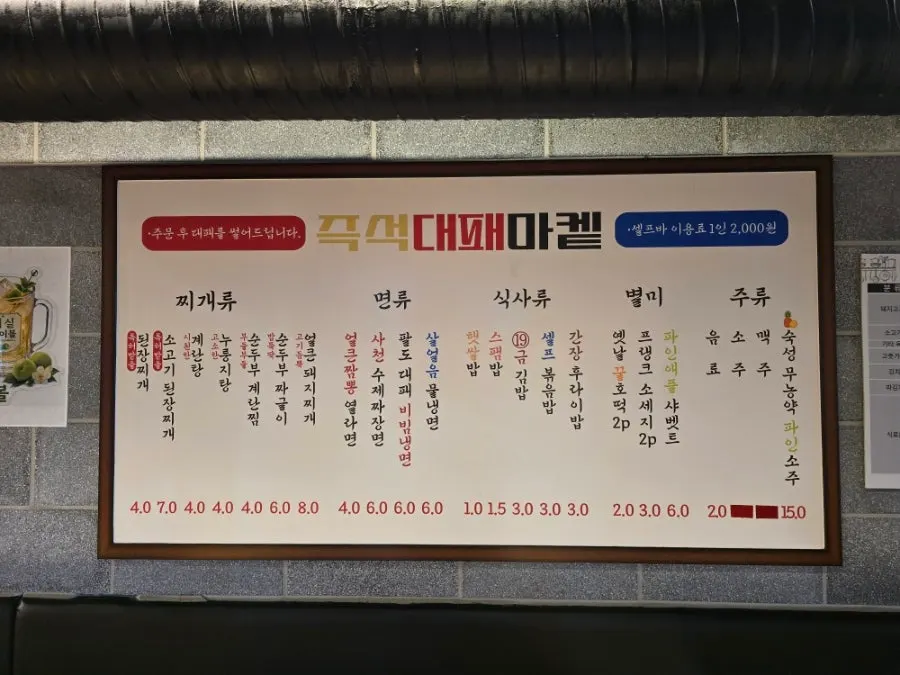 ·주문 후 대패를 썰어드립니다.
즉석대패마켙
·셀프바 이용료 1인 2,000원
찌개류
뚝배기밥상 된장찌개 4.0
소고기 된장찌개 7.0
시원한 계란탕 4.0
고소한 누룽지탕 4.0
부들부들 순두부 계란찜 4.0
밥도둑 순두부 짜글이 6.0
고기듬뿍 얼큰 돼지찌개 8.0
면류
얼큰짬뽕 열라면 4.0
사천 수제짜장면 6.0
팔도 대패 비빔냉면 6.0
살얼음 물냉면 6.0
식사류
햇쌀밥 1.0
스팸밥 1.5
⑲금 김밥 3.0
셀프 볶음밥 3.0
간장 후라이밥 3.0
별미
옛날 꿀호떡 2p 2.0
프랭크 소세지 2p 3.0
파인애플 샤벳트 6.0
주류
음료 2.0
소주
맥주
숙성 무농약 파인소주 15.0